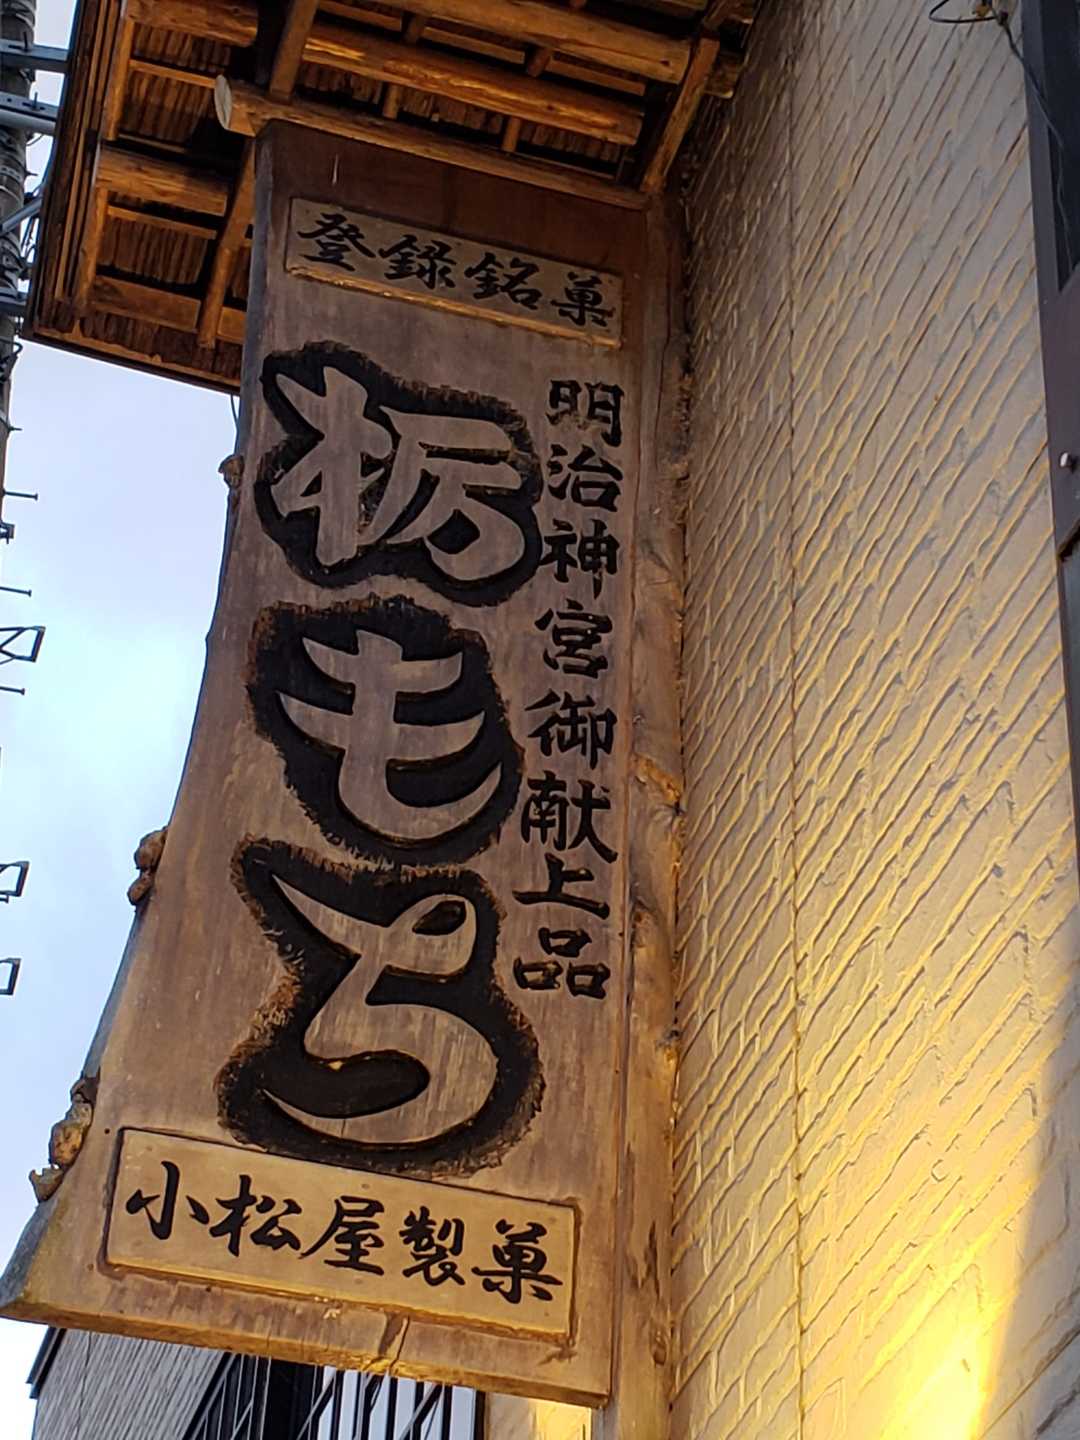 登録銘菓
明治神宮御献上品
栃もち
小松屋製菓